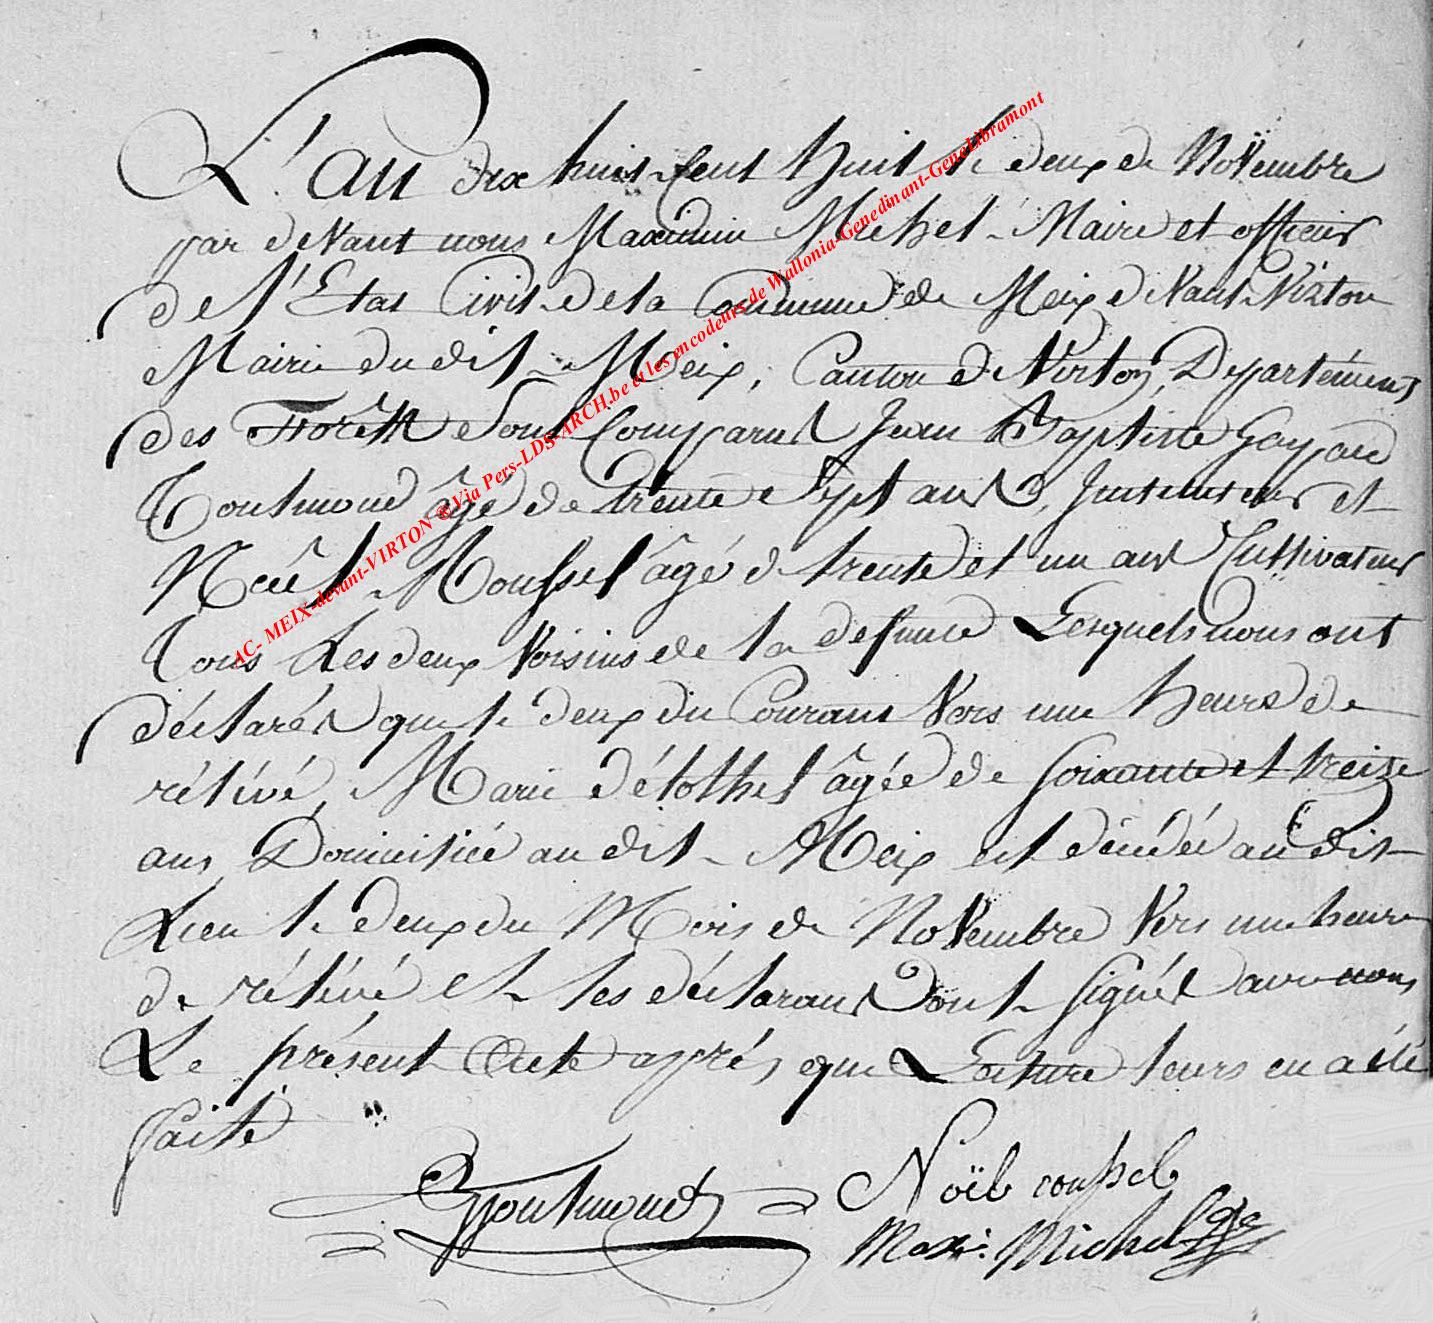 L'an dix huit Cent huit le deux de Novembre
par devant nous Maximin Michel Maire et officier
de l'Etat Civil de la Commune de Meix devant Virton
Mairie du dit Meix, Canton de Virton, Departément
des Forêts Sont Comparus Jean Baptiste
Toutmond âgé de trente Sept ans, et
Noël âgé de trente et un ans Cultivateur
Tous Les deux Voisins de la defunte Lesquels nous ont
déclarés que le deux du Courant Vers une heure de
rélévé, Marie âgée de soixante et treize
ans Domiciliée au dit Meix est décédée au dit
Lieu le deux du Mois de Novembre Vers une heure
de rélévé et les déclarans ont Signés avec nous
Le présent Acte aprés que Lecture leurs en a été
faite
Noël
Maxi: Michel
AC- MEIX-devant-VIRTON ®Via Pers-LDS-ARCH.be et les encodeurs de Wallonia-Genedinant-GeneLibramont